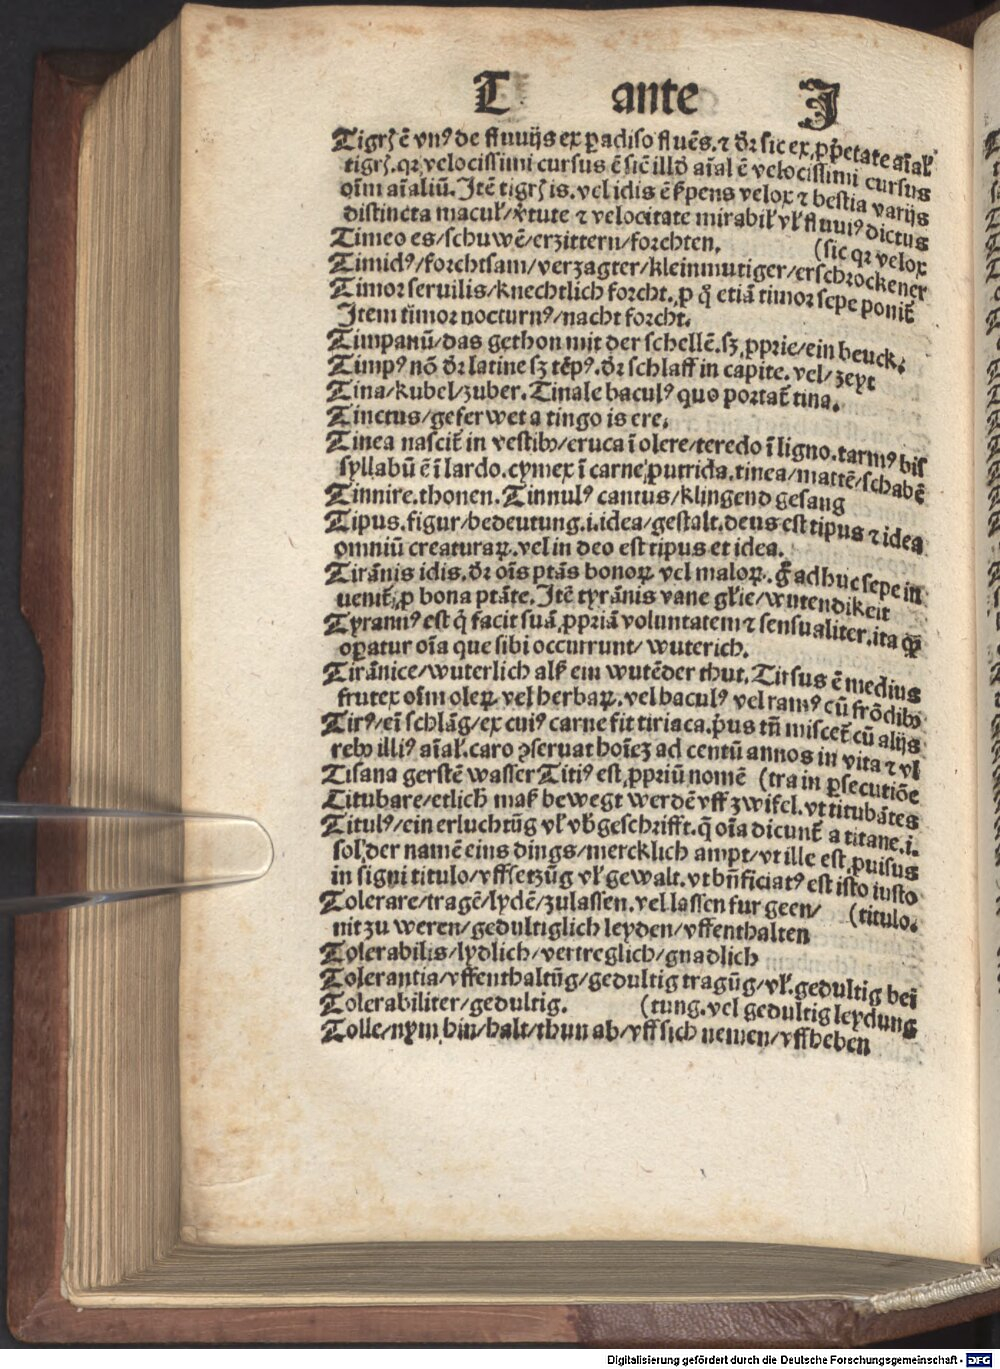 T ante J
Tigrꝭ ē vnꝰ de fluuijs ex ꝑadiso fluēs. ⁊ dr̄ sic ex ꝓp̄etate aīal̕
tigrꝭ. qꝛ velocissimi cursus ē sic̄ illd̕ aīal ē velocissimi cursus
oīm aīaliū. Itē tigrꝭ is. vel idis ē ẜpens velox ⁊ bestia varijs
distincta macul̕/ v̕tute ⁊ velocitate mirabil̕ vl̕ fluuiꝰ dictus
Timeo es/schuwē/erzittern/forchten. (sic qꝛ velox
Timidꝰ/forchtsam/verzagter/kleinmutiger/erschrockener
Timor seruilis/knechtlich forcht. ꝓ q̄ etiā timor sepe ponit̄
Item timor nocturnꝰ/nacht forcht.
Timpanū/das gethon mit der schellē. sꝫ ꝓprie/ein beuck.
Timpꝰ nō dr̄ latine sꝫ tēpꝰ. dr̄ schlaff in capite. vel/zeyt
Tina/kubel/zuber. Tinale baculꝰ quo portat̄ tina.
Tinctus/geferwet a tingo is ere.
Tinea nascit̄ in vestibꝫ/eruca ī olere/teredo ī ligno. tarmꝰ bis
syllabū ē ī lardo. cymex ī carne putrida. tinea/mattē/schabē
Tinnire. thonen. Tinnulꝰ cantus/klingend gesang
Tipus. figur/bedeutung. i. idea/gestalt. deus est tipus ⁊ idea
omniū creaturaꝝ. vel in deo est tipus et idea.
Tirānis idis. dr̄ oīs ptās bonoꝝ vel maloꝝ. g̊ adhuc sepe in
uenit̄ ꝓ bona ptāte. Itē tyrānis vane gl̕ie/wutendikeit
Tyrannꝰ est q̇ facit suā ꝓpriā voluntatem ⁊ sensualiter. ita ꝙ
oꝑatur oīa que sibi occurrunt/wuterich.
Tirānice/wuterlich als̕ ein wutēder thut. Tirsus ē medius
frutex oīm oleꝝ vel herbaꝝ. vel baculꝰ vel ramꝰ cū frōdibꝫ
Tirꝰ/eī schlāg/ex cuiꝰ carne fit tiriaca. p̄us tn̄ miscet̄ cū alijs
rebꝫ illiꝰ aīal̕. caro ꝯseruat hoīeꝫ ad centū annos in vita ⁊ vl̕
Tisana gerstē wasser Titiꝰ est ꝓpriū nomē (tra in ꝑsecutiōe
Titubare/etlich̕ mas̕ bewegt werdē vff zwifel. vt titubātes
Titulꝰ/ein erluchtūg vl̕ vb̕geschrifft. q̄ oīa dicunt̄ a titane. i.
sol/der namē eins dings/mercklich ampt/vt ille est ꝓuisus
in signi titulo/vffsetzūg vl̕ gewalt. vt bn̄ficiatꝰ est isto iusto
Tolerare/tragē/lydē/zulassen. vel lassen fur geen/ (titulo.
nit zu weren/gedultiglich leyden/vffenthalten
Tolerabilis/lydlich/vertreglich/gnadlich
Tolerantia/vffenthaltūg/gedultig tragūg/vl̕. gedultig bei
Tolerabiliter/gedultig. (tung. vel gedultig leydung
Tolle/nym hin/halt/thun ab/vff sich nemen/vffheben
Digitalisierung gefördert durch die Deutsche Forschungsgemeinschaft - DFG